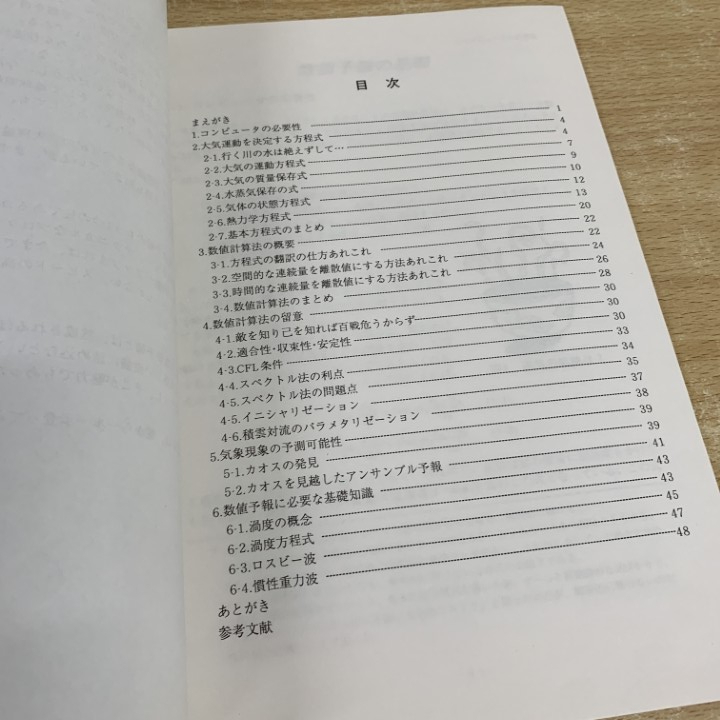 目 次
まえがき
1.コンピュータの必要性 1
2.大気運動を決定する方程式 4
2-1.行く川の水は絶えずして… 4
2-2.大気の運動方程式 7
2-3.大気の質量保存式 9
2-4.水蒸気保存の式 10
2-5.気体の状態方程式 12
2-6.熱力学方程式 13
2-7.基本方程式のまとめ 20
3.数値計算法の概要 22
3-1.方程式の翻訳の仕方あれこれ 22
3-2.空間的な連続量を離散値にする方法あれこれ 24
3-3.時間的な連続量を離散値にする方法あれこれ 26
3-4.数値計算法のまとめ 28
4.数値計算法の留意 30
4-1.敵を知り己を知れば百戦危うからず 30
4-2.適合性・収束性・安定性 30
4-3.CFL条件 33
4-4.スペクトル法の利点 34
4-5.スペクトル法の問題点 35
4-5.イニシャリゼーション 37
4-6.積雲対流のパラメタリゼーション 38
5.気象現象の予測可能性 39
5-1.カオスの発見 39
5-2.カオスを見越したアンサンブル予報 41
6.数値予報に必要な基礎知識 43
6-1.渦度の概念 43
6-2.渦度方程式 45
6-3.ロスビー波 47
6-4.慣性重力波 48
あとがき
参考文献